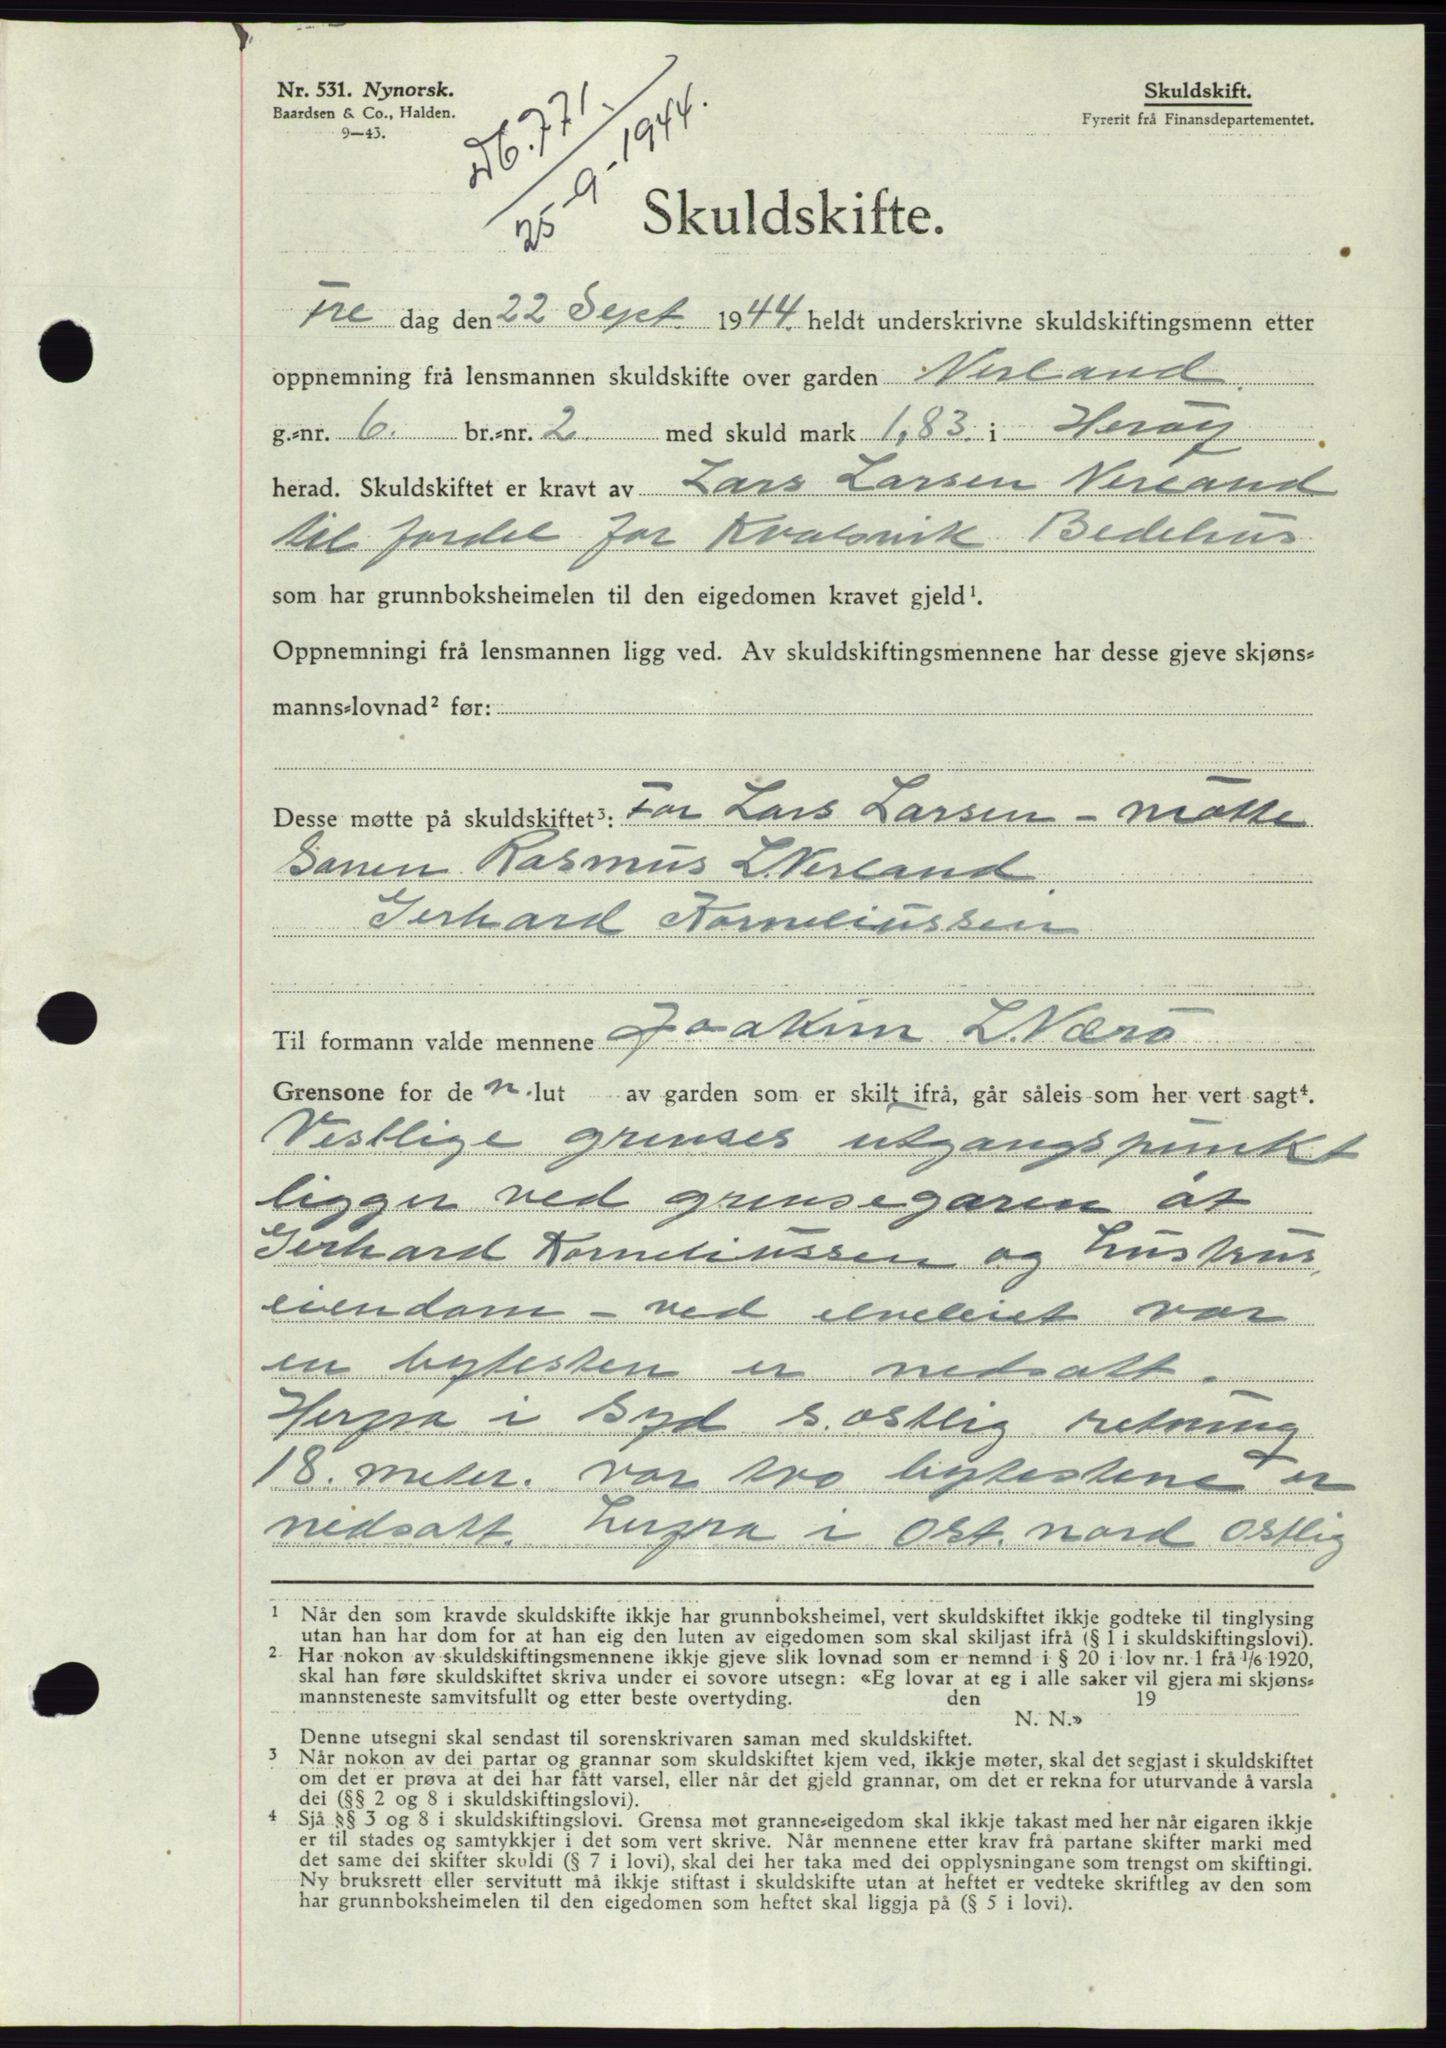 Nr. 531. Nynorsk.
Baardsen & Co., Halden.
9—43.
Skuldskift.
Fyrerit frå Finansdepartementet.
Db. 771.
25 9-1944.
Skuldskifte.
Fre dag den 22 Sept. 1944. heldt underskrivne skuldskiftingsmenn etter
oppnemning frå lensmannen skuldskifte over garden Nerland.
g.=nr. 6. br.=nr. 2. med skuld mark 1,83. i Herøy
herad. Skuldskiftet er kravt av Lars Larsen Nerland
til fordel for Kvalsvik Bedehus
som har grunnboksheimelen til den eigedomen kravet gjeld¹.
Oppnemningi frå lensmannen ligg ved. Av skuldskiftingsmennene har desse gjeve skjøns=
manns=lovnad² før:
Desse møtte på skuldskiftet³: For Lars Larsen - møtte
Sønen Rasmus L. Nerland.
Gerhard Korneliussen
Til formann valde mennene Joakim L. Nærø
Grensone for de n. lut av garden som er skilt ifrå, går såleis som her vert sagt⁴.
Vestlige grenses utgangspunkt
ligger ved grensegaren åt
Gerhard Korneliussen og hustrus,
eiendom - ved elveleiet var
en bytesten er nedsatt.
Herfra i Syd s. østlig retning
18. meter. var tvo bytestene er
nedsatt. herfra i øst. nord østlig
1 Når den som kravde skuldskifte ikkje har grunnboksheimel, vert skuldskiftet ikkje godteke til tinglysing
utan han har dom for at han eig den luten av eigedomen som skal skiljast ifrå (§ 1 i skuldskiftingslovi).
2. Har nokon av skuldskiftingsmennene ikkje gjeve slik lovnad som er nemnd i § 20 i lov nr. 1 frå 1/6 1920,
skal han føre skuldskiftet skriva under ei sovore utsegn: «Eg lovar at eg i alle saker vil gjera mi skjøns=
mannsteneste samvitsfullt og etter beste overtyding. den 19
N. N.»
Denne utsegni skal sendast til sorenskrivaren saman med skuldskiftet.
3 Når nokon av dei partar og grannar som skuldskiftet kjem ved, ikkje møter, skal det segjast i skuldskiftet
om det er prøva at dei har fått varsel, eller når det gjeld grannar, om det er rekna for uturvande å varsla
dei (§§ 2 og 8 i skuldskiftingslovi).
4 Sjå §§ 3 og 8 i skuldskiftingslovi. Grensa mot granne=eigedom skal ikkje takast med her når eigaren ikkje
er til stades og samtykkjer i det som vert skrive. Når mennene etter krav frå partane skifter marki med
det same dei skifter skuldi (§ 7 i lovi), skal dei her taka med dei opplysningane som trengst om skiftingi.
Ny bruksrett eller servitutt må ikkje stiftast i skuldskifte utan at heftet er vedteke skriftleg av den som
har grunnboksheimelen til den eigedomen som heftet skal liggja på (§ 5 i lovi).